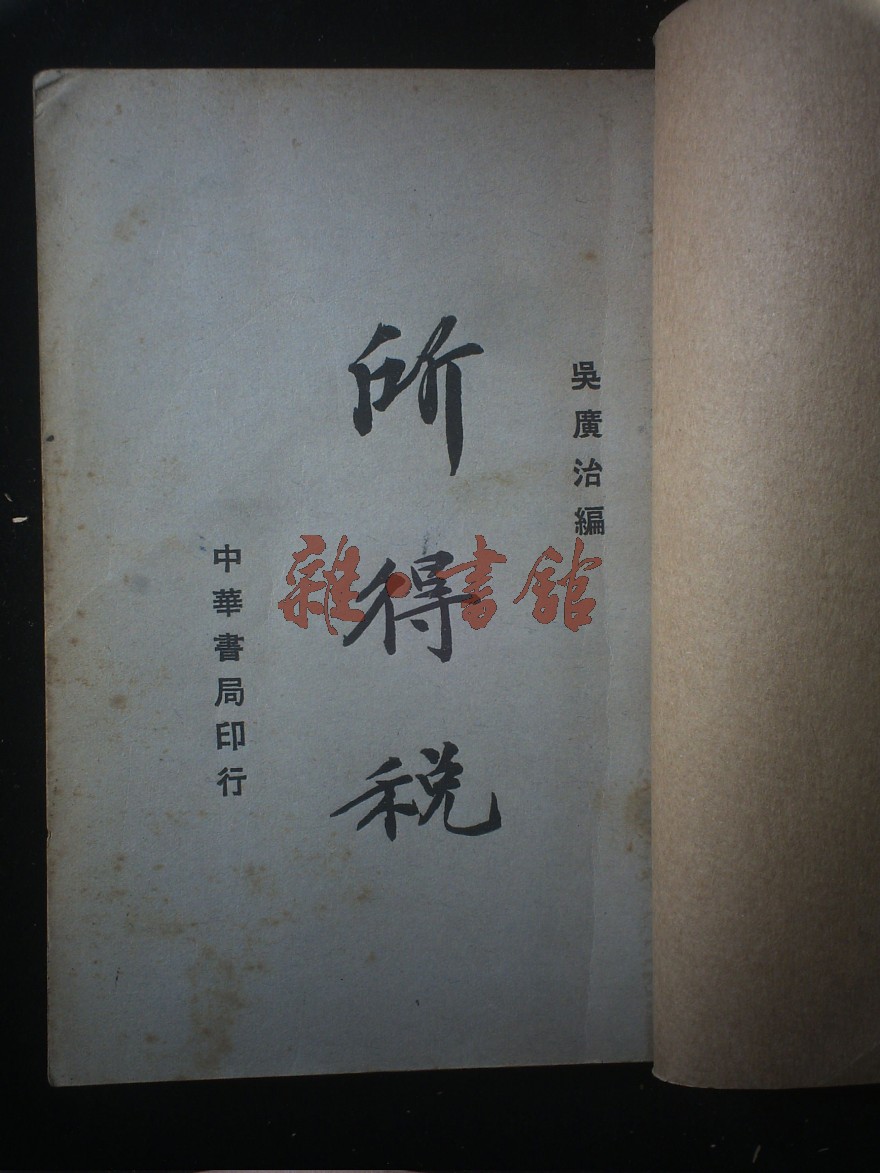 吳廣治編
所得税
中華書局印行
雜·書館